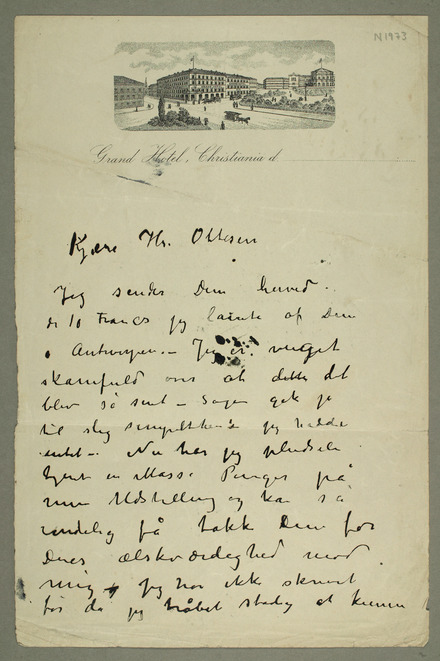 N 1973
Grand Hotel, Christiania d
Kjære Hr. Ottesen
Jeg sender Dem herved
de 10 Francs jeg lainte af Dem
i Antwerpen. – Jeg er meget
skamfuld over at dette det
blev så sent – Sagen gik jo
til slig simpelthen jeg hadde
intet – Nu har jeg pludselig
tjent en Masse Penger på
min Udstilling og kan så
endelig få takk Dem for
Deres ælskværdeghed mod
mig – Jeg har ikke skrevet
før da jeg håbet stadig at kunne